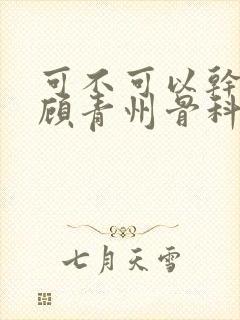 可不可以幹
顾青州骨科
七月天雪